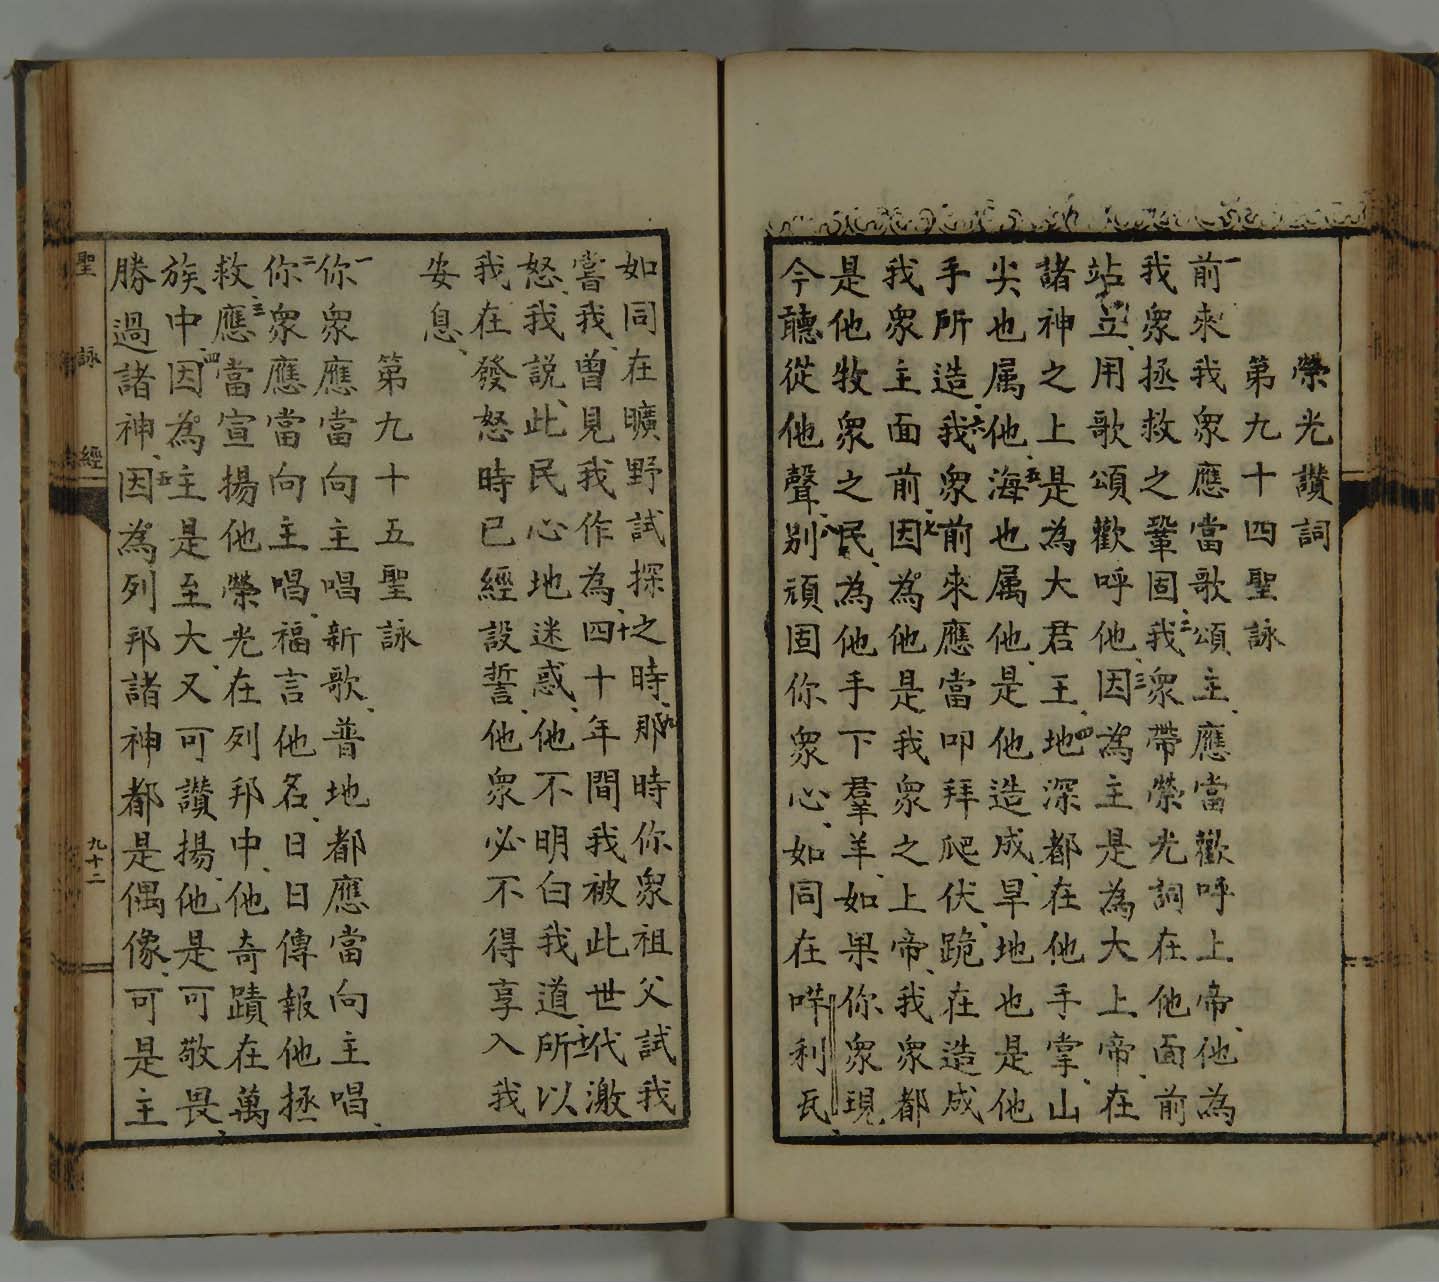 榮光讚詞
第九十四聖詠
一前來我衆應當歌頌主、應當歡呼上帝、他為
我衆拯救之鞏固、二我衆帶榮光詞在他面前
站立、用歌頌歡呼他、三因為主是為大上帝、在
諸神之上是為大君王、四地深都在他手掌、山
尖也属他、五海也属他、是他造成、旱地也是他
手所造、六我衆前來應當叩拜爬伏、跪在造成
我衆主面前、七因為他是我衆之上帝、我衆都
是他牧衆之民、為他手下羣羊、如果你衆現
今聽從他聲、八别頑固你衆心、如同在咩利瓦、
如同在曠野試探之時、九那時你衆祖父試我
嘗我、曾見我作為、十四十年間我被此世代激
怒、我說、此民心地迷惑、他不明白我道、十一所以
我在發怒時已經設誓、他衆必不得享入我
安息、
第九十五聖詠
一你衆應當向主唱新歌、普地都應當向主唱、
二你衆應當向主唱、福言他名、日日傳報他拯
救、三應當宣揚他榮光在列邦中、他奇蹟在萬
族中、四因為主是至大、又可讚揚、他是可敬畏、
勝過諸神、五因為列邦諸神都是偶像、可是主
聖詠經
九十二